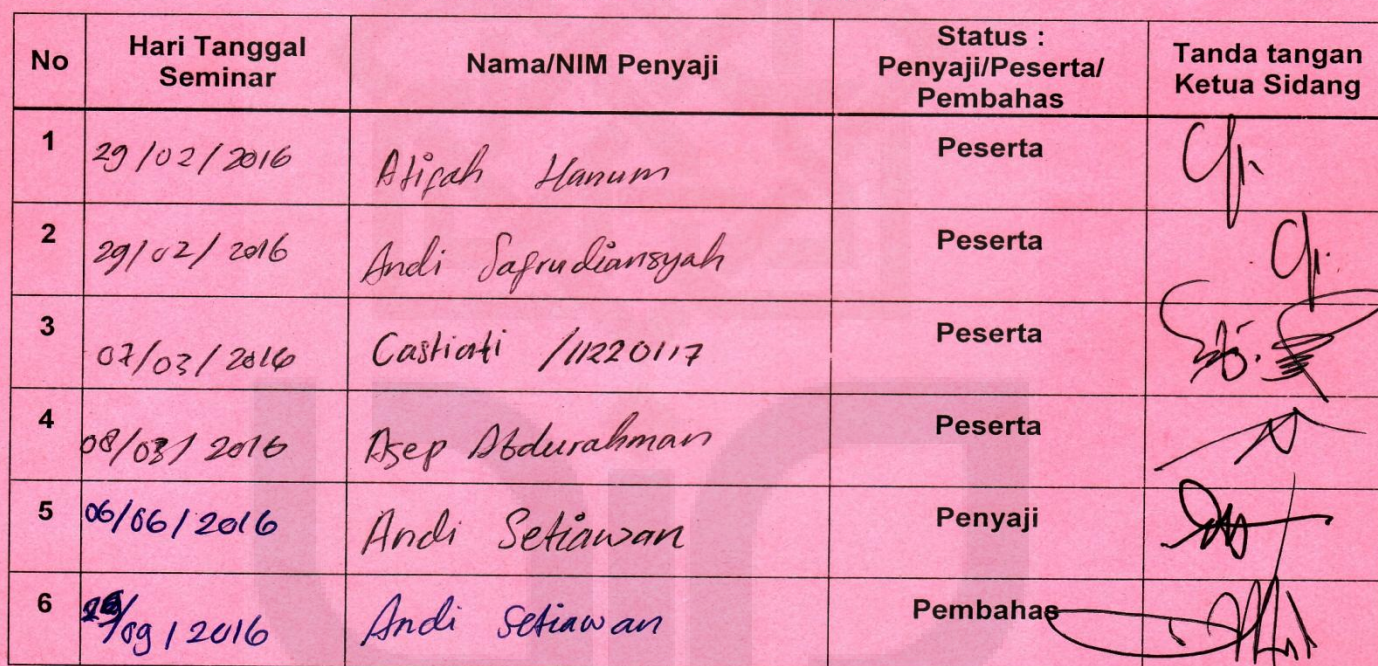 No
Hari Tanggal
Seminar
Nama/NIM Penyaji
Status :
Penyaji/Peserta/
Pembahas
Tanda tangan
Ketua Sidang
1 29/02/2016 Atifah Hanum Peserta
2 29/02/2016 Andi Safrudiansyah Peserta
3 07/03/2016 Castiati /11220117 Peserta
4 08/03/2016 Asep Abdurahman Peserta
5 06/06/2016 Andi Setiawan Penyaji
6 /09/2016 Andi Setiawan Pembahas